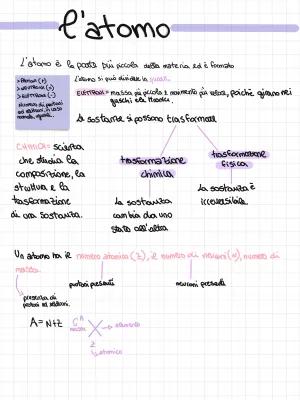 l'atomo
L'atomo è la parte più piccola della materia ed è formato
> PROTONI (+)
> NEUTRONI (•)
> ELETTRONI (-)
L'atomo si può dividere in quark.
ELETTRONI = massa più piccola e movimento più veloce, poiché girano nei
gusci
Le sostanze si possono trasformare
CHIMICA = scienza
che studia la
composizione, la
struttura e la
trasformazione
di una sostanza.
trasformazione
chimica
trasformazione
fisica
la sostanza
cambia da uno
stato all'altro
la sostanza è
irreversibile.
Un atomo ha il numero atomico (Z), il numero di neutroni (N), numero di
massa.
protoni presenti
neutroni presenti
A = N+Z
massa
A
X → elemento
Z
↳ atomico